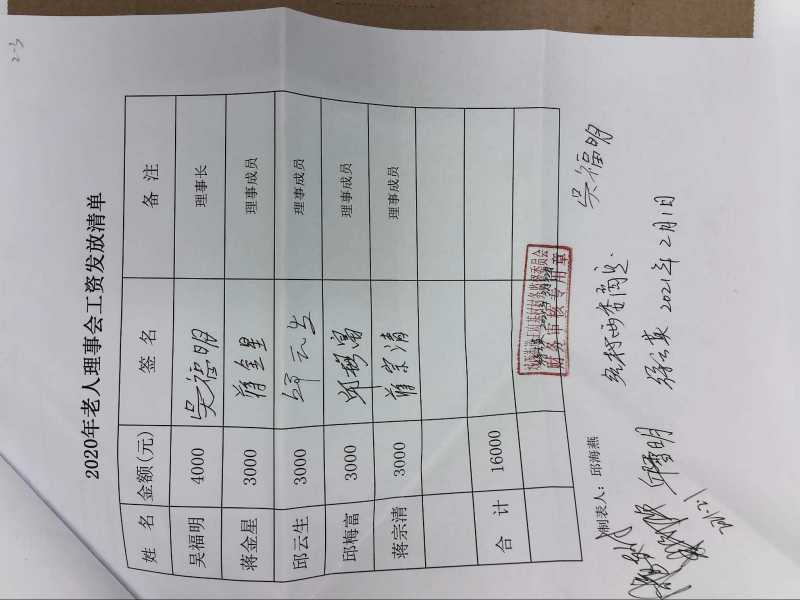 2020年老人理事会工资发放清单
姓 名 金额(元) 签 名 备 注
吴福明 4000 吴福明 理事长
蒋金星 3000 蒋金星 理事成员
邱云生 3000 邱云生 理事成员
邱梅富 3000 邱梅富 理事成员
蒋宗清 3000 蒋宗清 理事成员
合 计 16000
财务审核专用章
制表人：邱海燕
吴福明
2021年2月1日
2-3